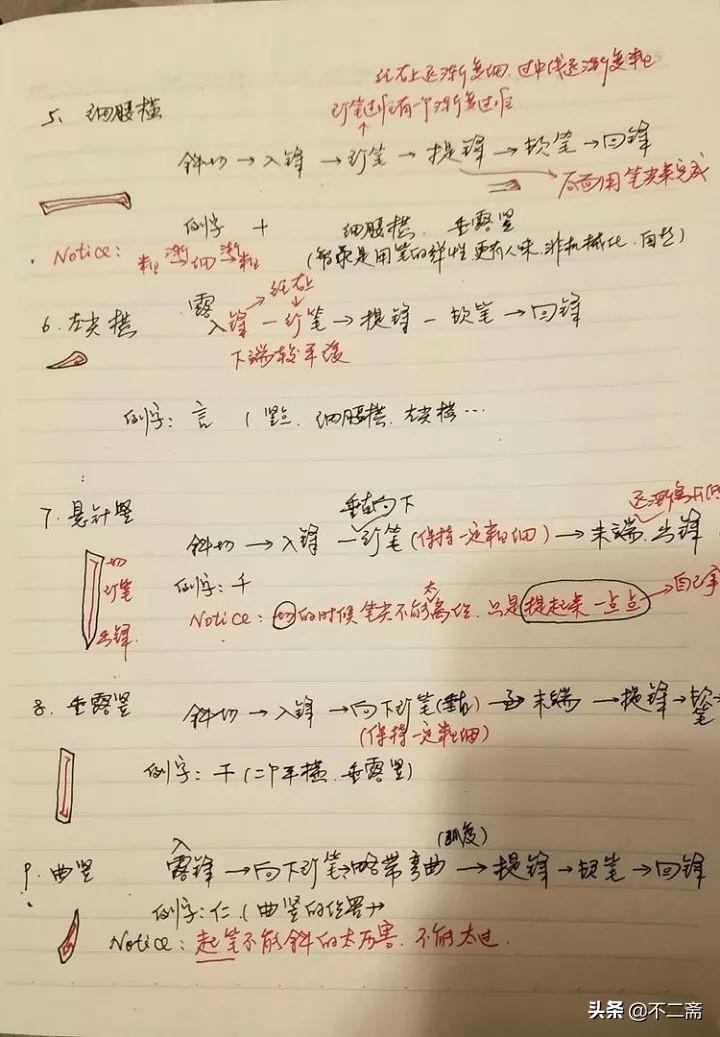 往右上逐渐变细.过中线逐渐变粗
行笔过程有一个渐变过程
5、细腰横
斜切→入锋→行笔→提锋→顿笔→回锋
后面用笔尖来完成
例字 十 细腰横.垂露竖
Notice: 粗渐细渐粗
(都是用笔的弹性,更有人味.非机械化.自然)
往右上
6.左尖横 露入锋—行笔→提锋—顿笔→回锋
下端较平缓
例字:言(竖点.细腰横.左尖横…
垂直向下
7.悬针竖
斜切→入锋—行笔(保持一定粗细)→末端.出锋
切
行笔
出锋
例字:千
Notice:切的时候笔尖不能太离位.只是提起来一点点→自己拿
8.垂露竖 斜切→入锋→向下行笔(垂直)→末端→提锋→顿笔→
(保持一定粗细)
例字:干(二个平横.垂露竖)
9.曲竖 露入锋→向下行笔→略带弯曲(弧度)→提锋→顿笔→回锋
例字:仁.(曲竖的位置
Notice:起笔不能斜的太厉害.不能太过.
头条@不二斋